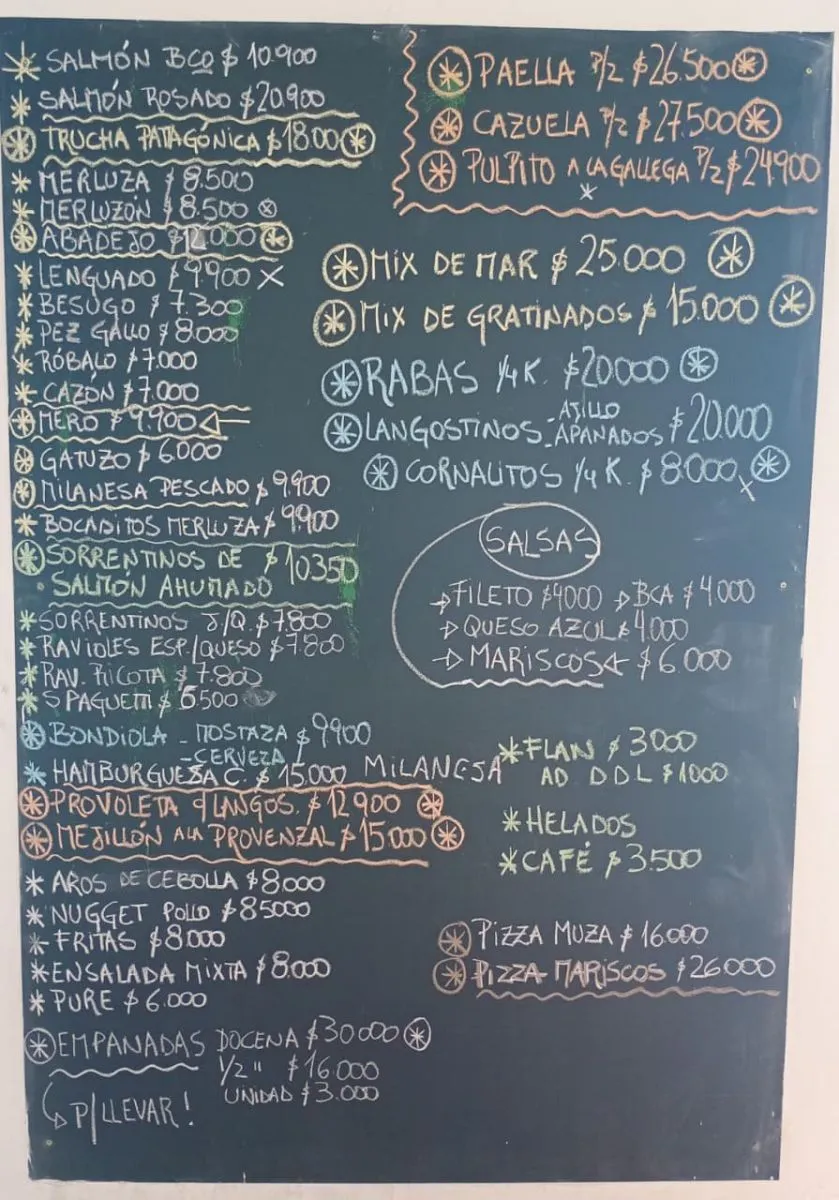 SALMÓN BCO $ 10.900
SALMÓN ROSADO $20.900
TRUCHA PATAGÓNICA $18.00
MERLUZA $ 8.500
MERLUZÓN $ 8.500
ABADEJO $12.000
LENGUADO $9.900 X
BESUGO $ 7.300
PEZ GALLO $ 8.000
RÓBALO $7.000
CAZÓN $7.000
MERO $ 9.900
GATUZO $ 6.000
MILANESA PESCADO $ 9.900
BOCADITOS MERLUZA $ 9.900
SORRENTINOS DE $ 10350
SALMÓN AHUMADO
SORRENTINOS J/Q. $7.800
RAVIOLES ESP/QUESO $7.800
RAV. RICOTA $ 7.800
SPAGUETTI $ 6.500
BONDIOLA - MOSTAZA $ 9900
- CERVEZA
HAMBURGUESA C. $ 15.000 MILANESA
PROVOLETA 9 LANGOS. $ 12900
MEJILLÓN A LA PROVENZAL $ 15.000
AROS DE CEBOLLA $8.000
NUGGET POLLO $85000
FRITAS $8.000
ENSALADA MIXTA $ 8.000
PURE $ 6.000
EMPANADAS DOCENA $30000
1/2 " $ 16.000
UNIDAD $ 3.000
P/LLEVAR!
PAELLA P/2 $26.500
CAZUELA P/2 $27.500
PULPITO A LA GALLEGA P/2 $24900
MIX DE MAR $ 25.000
MIX DE GRATINADOS $ 15.000
RABAS 1/4 K. $20000
LANGOSTINOS - AJILLO
- APANADOS $ 20.000
CORNALITOS 1/4 K. $ 8.000 X
SALSAS
FILETO $4000 BCA $ 4.000
QUESO AZUL $ 4.000
MARISCOS $ 6.000
FLAN $ 3000
AD DDL $1000
HELADOS
CAFÉ $ 3.500
PIZZA MUZA $ 16.000
PIZZA MARISCOS $26000